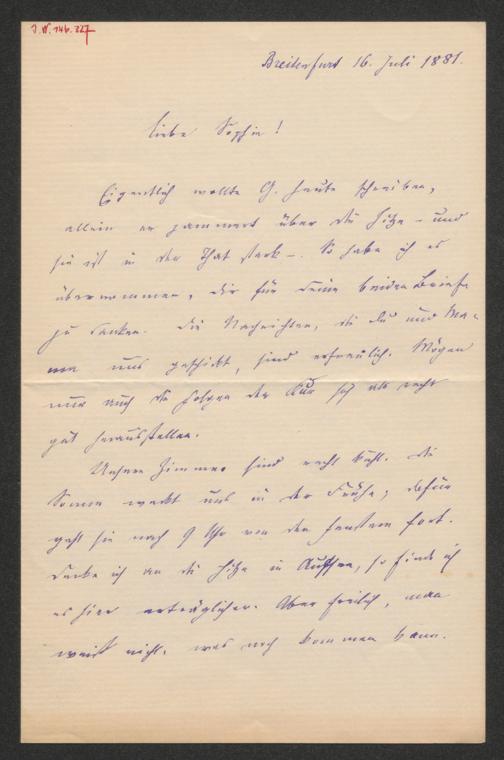 J.N. 146.227
Breitenfurt 16. Juli 1881.
Liebe Sophie!
Eigentlich wollte G. heute schreiben,
allein er jammert über die Hitze – und
sie ist in der That stark –. So habe ich es
übernommen, dir für deine beiden Briefe
zu danken. Die Nachrichten, die du und Ma-
ma uns geschickt, sind erfreulich. Mögen
nur auch die Folgen der Kur sich als recht
gut herausstellen.
Unsere Zimmer sind recht kühl. Die
Sonne weckt uns in der Frühe; dafür
geht sie nach 9 Uhr von den Fenstern fort.
Denke ich an die Hitze in Aussee, so finde ich
es hier erträglicher. Aber freilich, man
weiß nicht, was noch kommen kann.